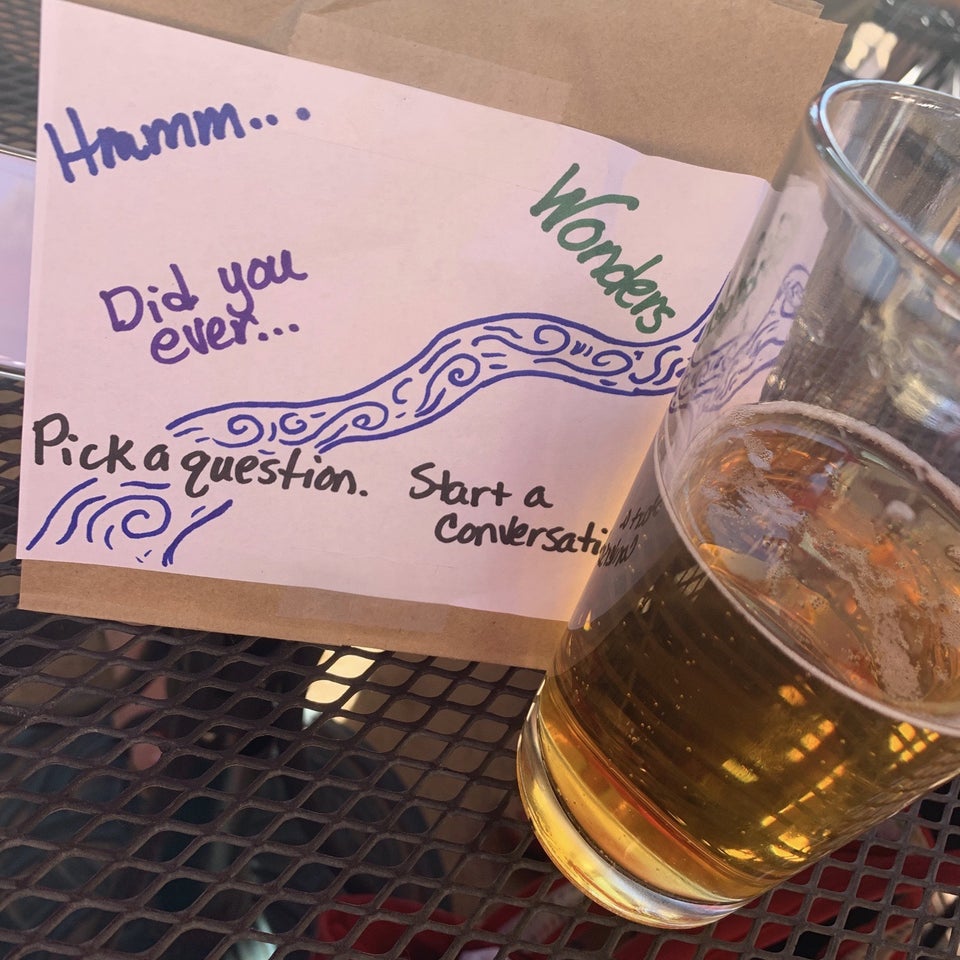 Hmmm...
Wonders
Did you
ever...
Pick a question.
Start a
conversati